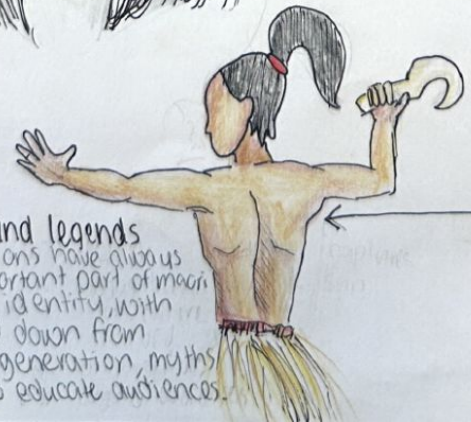 and legends
ons have always
ortant part of maori
identity, with
down from
generation, myths
educate audiences.